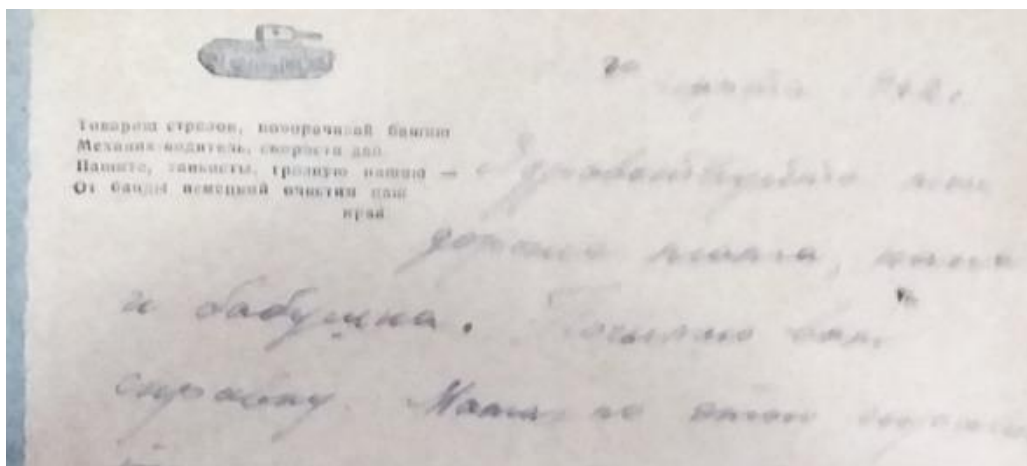 Товарищ стрелок, поворачивай башню
Механик-водитель, скорости дай.
Пашите, танкисты, грозную пашню —
От банды немецкой очистим наш
край
Здравствуйте мои
дорогие мама, папа
и бабушка. Посылаю вам
справку. Мама, по этой